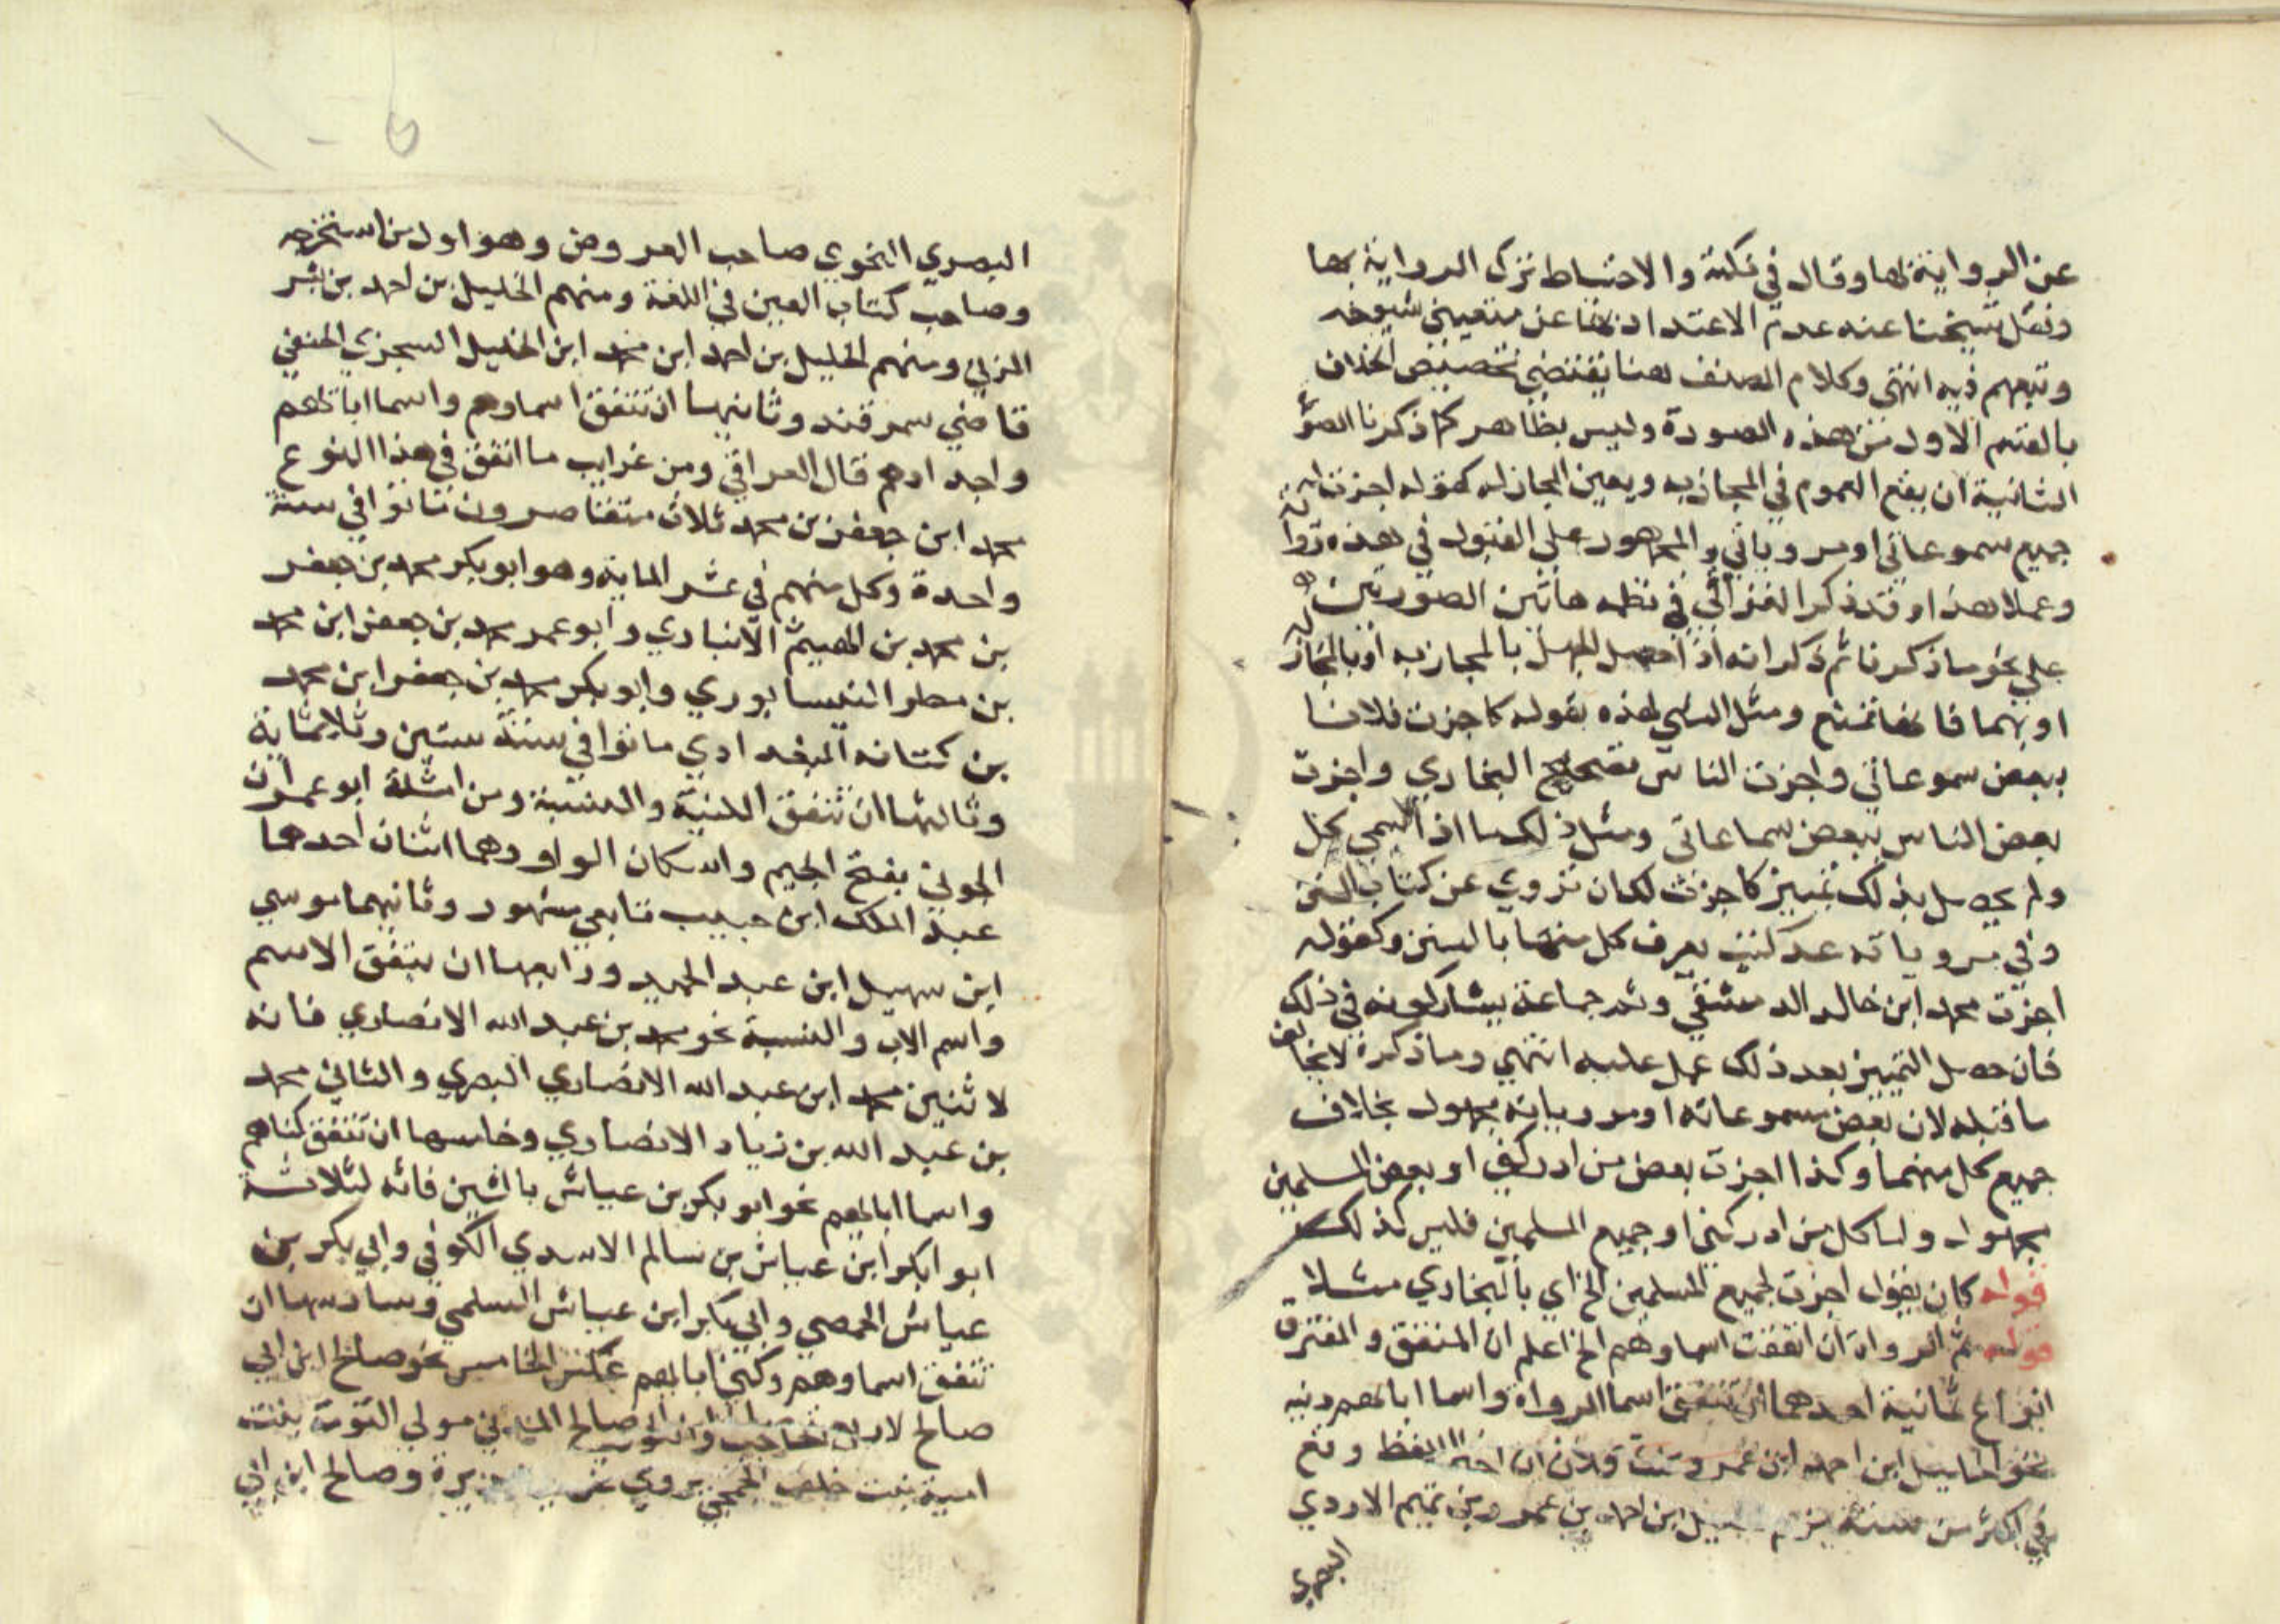 عن الرواية بها وقال في نكته والاحتياط ترك الرواية بها
ونقل شيخنا عنه عدم الاعتداد بها عن متقيني شيوخه
وتبعهم فيه انتهى وكلام المصنف هنا يقتضي تخصيص الخلاف
بالقسم الاول من هذه الصورة وليس بظاهر كما ذكرنا الصورة
الثانية ان يقع العموم في المجاز به ويعين المجاز له كقوله اجزت لك
جميع مسموعاتي او مروياتي والجمهور على القبول في هذه رواية
وعملا هذا وقد ذكر العراقي في نظمه هاتين الصورتين
على نحو ما ذكرنا ثم ذكر انه اذا حصل الجهل بالمجاز به او بالمجاز له
او بهما فانها تمتنع ومثل الشمني لهذه بقوله كاجزت فلانا
ببعض مسموعاتي واجزت الناس صحيح البخاري واجزت
بعض الناس ببعض سماعاتي ومثل ذلك ما اذا سمى بحل
ولم يحصل بذلك تمييز كاجزت لك ان تروي عن كتاب السنن
وفي مروياته عدة كتب يعرف كل منها بالسنن وكقوله
اجزت محمد ابن خالد الدمشقي وثم جماعة يشاركونه في ذلك
فان حصل التمييز بعد ذلك عمل عليه انتهى وما ذكره لا يخالف
ما قبله لان بعض مسموعاته او مروياته مجهول بخلاف
جميع كل منهما وكذا اجزت بعض من ادركني او بعض المسلمين
مجهول واما كل من ادركني او جميع المسلمين فليس كذلك
قوله كان يقول اجزت لجميع المسلمين الخ اي بالبخاري مثلا
قوله ثم الرواة ان اتفقت اسماوهم الخ اعلم ان المتفق والمفترق
انواع ثمانية احدهما ان تتفق اسما الرواة واسما ابائهم وفيه
نحو الخليل ابن احمد ابن عمرو ستة فلان ان اخذ اللفظ وقع
في اكثر من ستة منهم الخليل ابن احمد بن عمرو بن تميم الازدي
البصري
البصري النحوي صاحب العروض وهو اول من استخرجه
وصاحب كتاب العين في اللغة ومنهم الخليل بن احمد بن بشر
المزني ومنهم الخليل بن احمد ابن محمد ابن الخليل السجزي الحنفي
قاضي سمرقند وثانيها ان تتفق اسماوهم واسما ابائهم
واجدادهم قال العراقي ومن غرايب ما اتفق في هذا النوع
محمد ابن جعفر بن محمد ثلاث متعاصرون ماتوا في سنة
واحدة وكل منهم في عشر الماية وهو ابو بكر محمد بن جعفر
بن محمد بن الهيثم الانباري وابو عمر محمد بن جعفر ابن محمد
بن مطر النيسابوري وابو بكر محمد بن جعفر ابن محمد
بن كنانه البغدادي ماتوا في سنة ستين وثلاثماية
وثالثها ان تتفق الكنية والنسبة ومن امثلة ابو عمران
الجوني بفتح الجيم واسكان الواو وهما اثنان احدهما
عبد الملك ابن حبيب تابعي مشهور وثانيهما موسى
ابن سهيل ابن عبد الحميد ورابعها ان يتفق الاسم
واسم الاب والنسبة نحو محمد بن عبد الله الانصاري فانه
لاثنين محمد ابن عبد الله الانصاري البصري والثاني محمد
بن عبيد الله بن زياد الانصاري وخامسها ان تتفق كناهم
واسما ابائهم نحو ابو بكر بن عياش بالشين فانه لثلاثة
ابو ابكر ابن عياش بن سالم الاسدي الكوفي وابي بكر بن
عياش الحمصي وابي بكر ابن عياش السلمي وسادسها ان
تتفق اسماوهم وكنى ابائهم عكس الخامس نحو صالح ابن ابي
صالح لاربعة صالح المدني مولى التومة بنت
امية بنت خلف الجمحي يروي عن هريرة وصالح ابن ابي